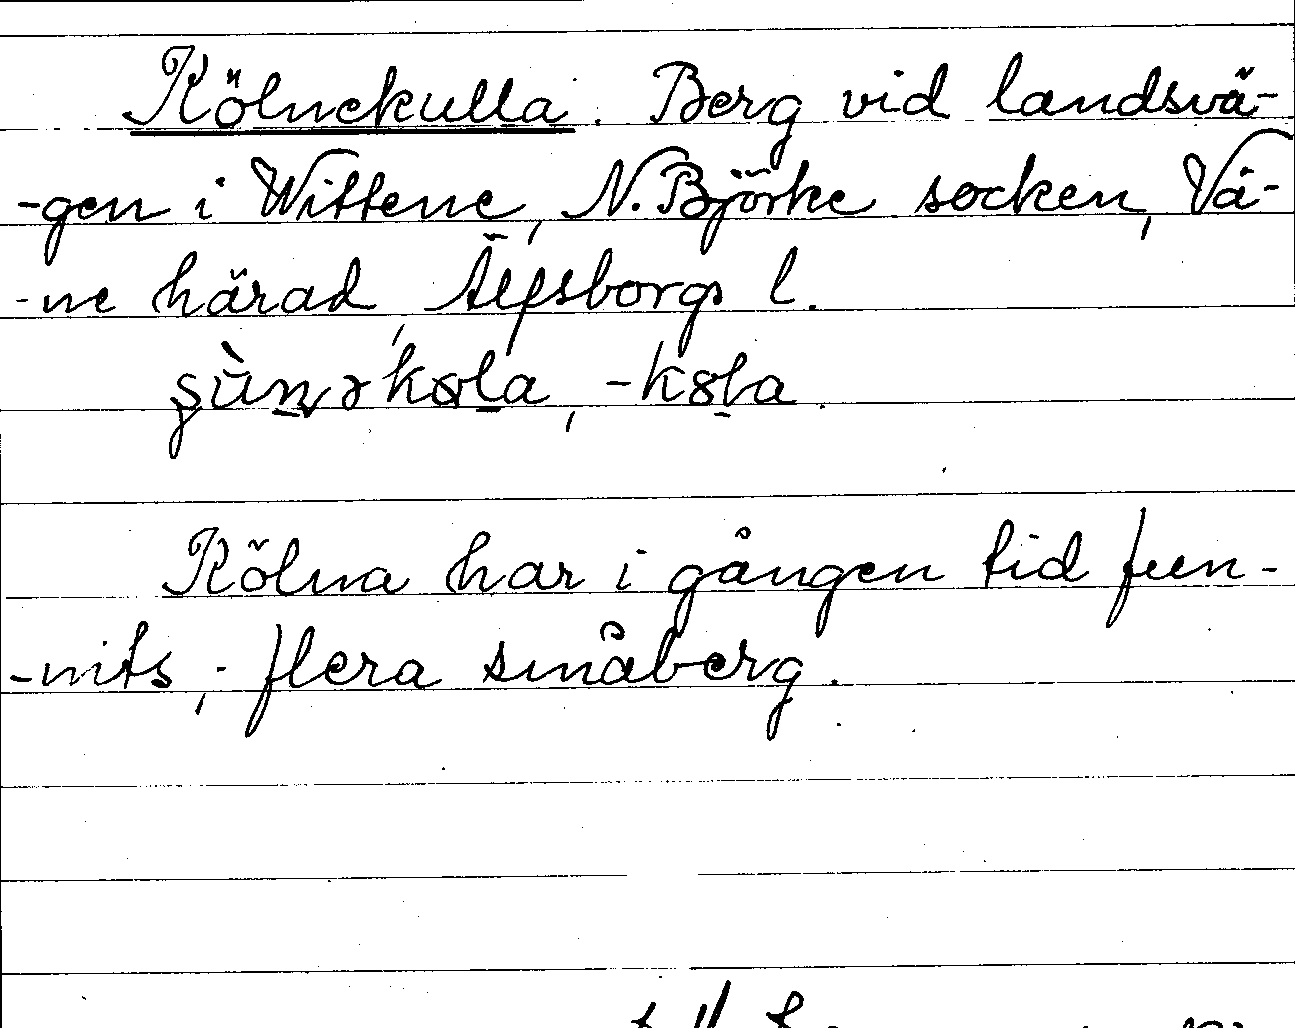 Kölnekulla. Berg vid landsvä-
-gen i Wittene, N. Björke socken, Vä-
-ne härad, Älfsborgs l.
Kölna har i gången tid fun-
-nits, - flera småberg.